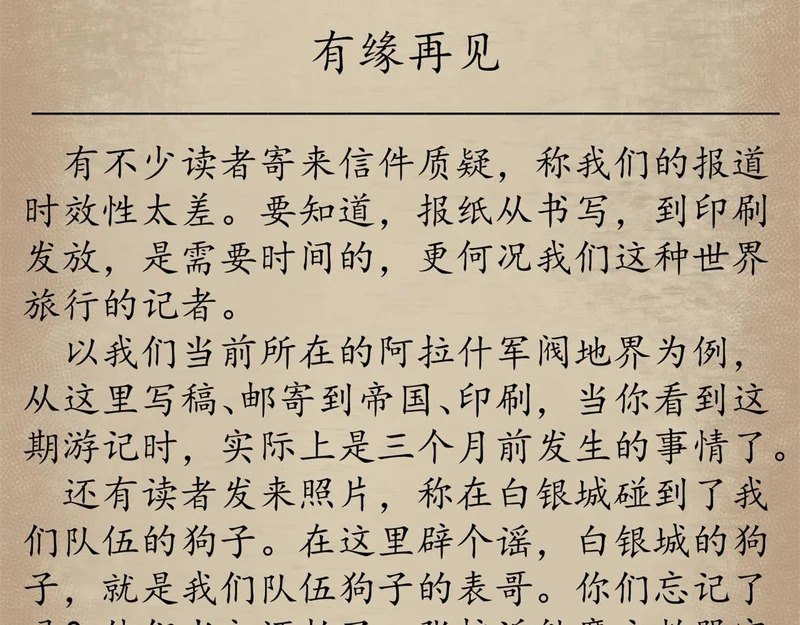 有缘再见
有不少读者寄来信件质疑，称我们的报道
时效性太差。要知道，报纸从书写，到印刷
发放，是需要时间的，更何况我们这种世界
旅行的记者。
以我们当前所在的阿拉什军阀地界为例，
从这里写稿、邮寄到帝国、印刷，当你看到这
期游记时，实际上是三个月前发生的事情了。
还有读者发来照片，称在白银城碰到了我
们队伍的狗子。在这里辟个谣，白银城的狗
子，就是我们队伍狗子的表哥。你们忘记了